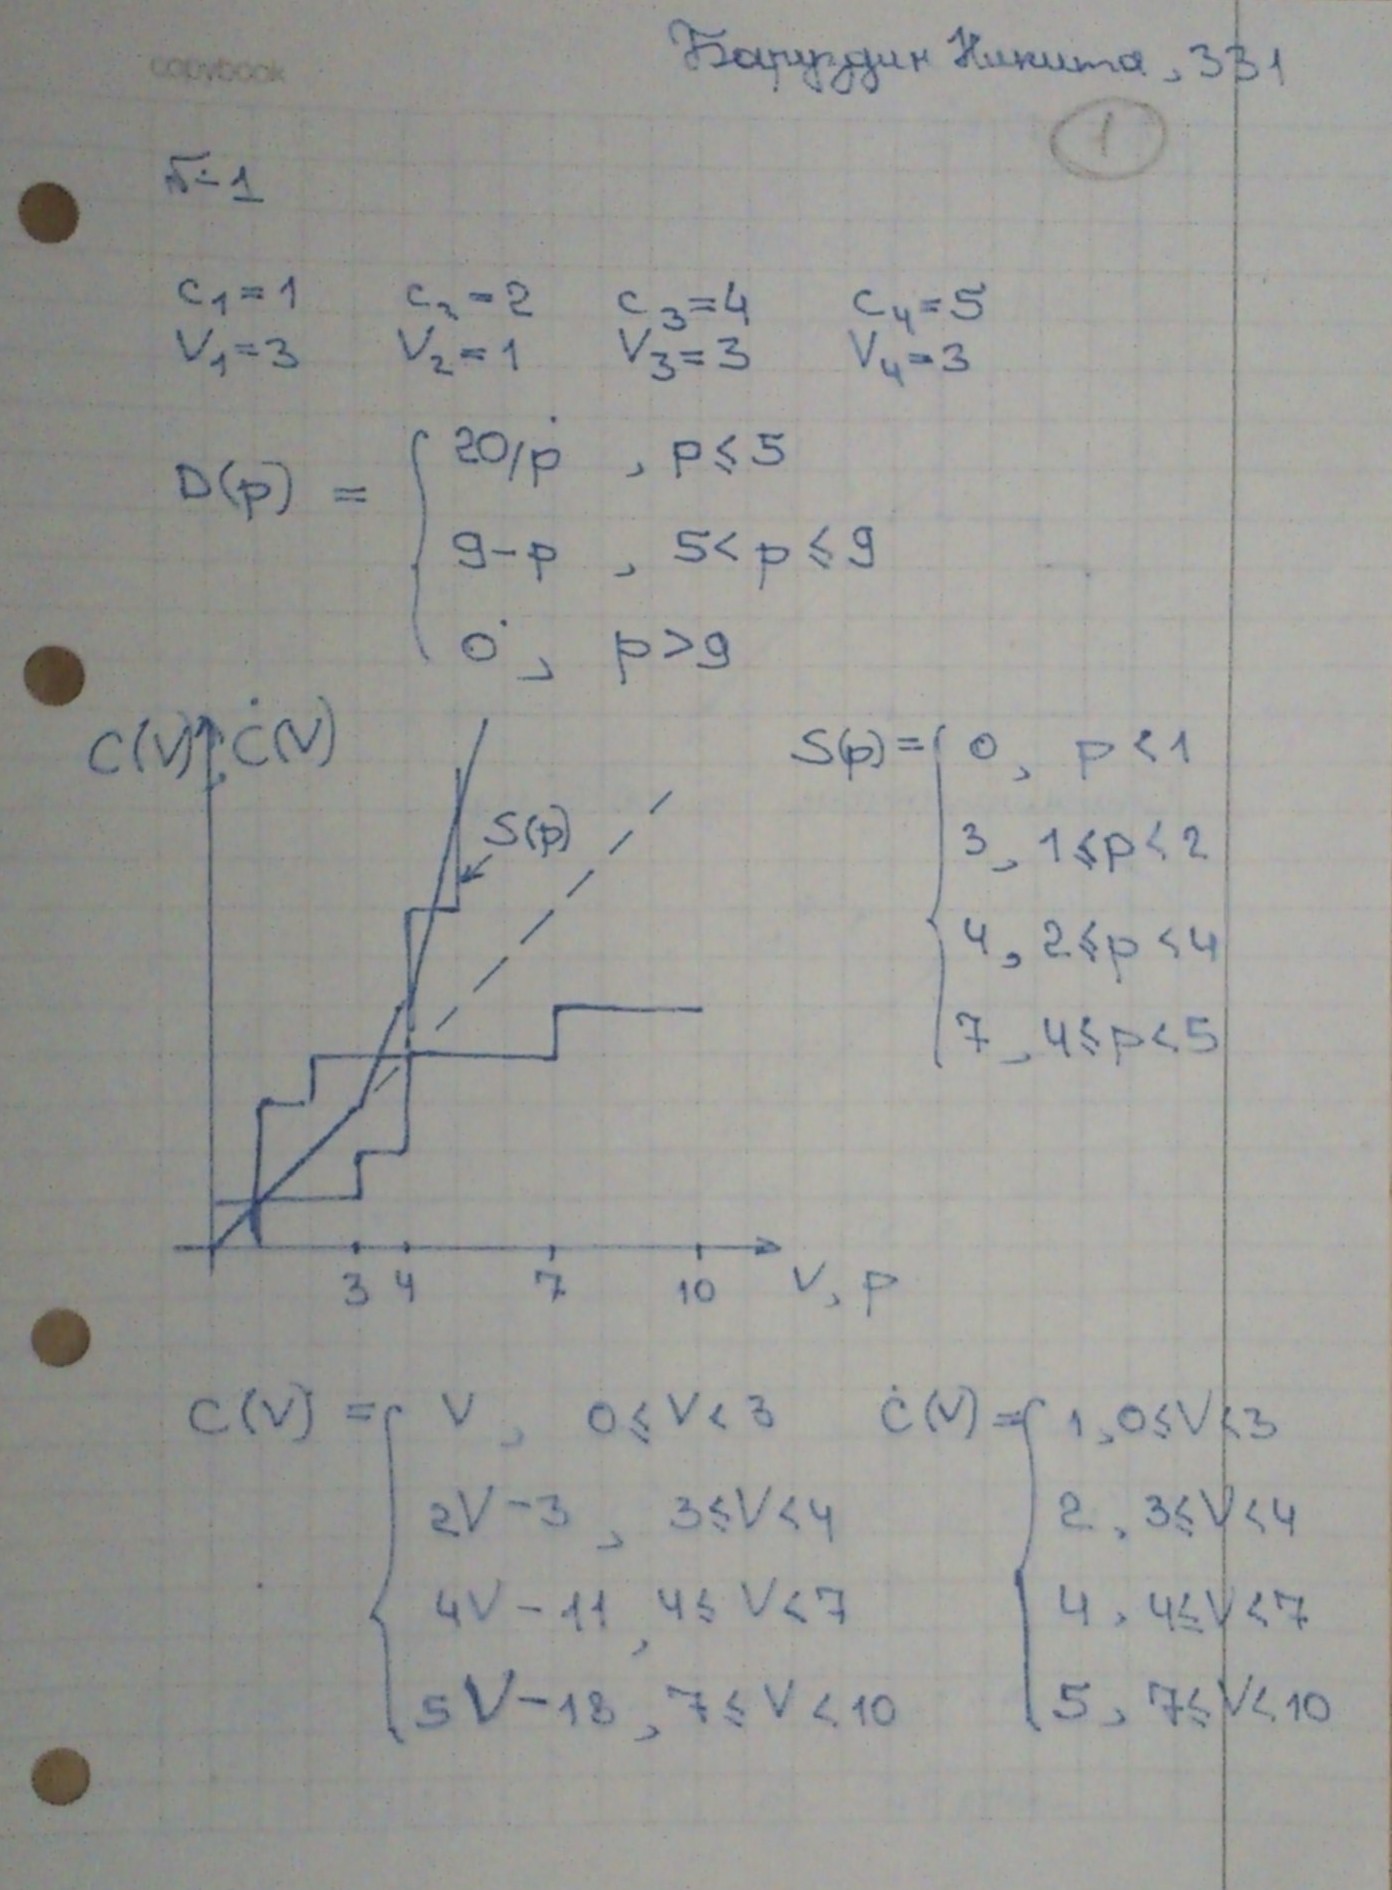 copybook
Барурдин Никита, 331
1
Б-1
c₁=1 c₂=2 c₃=4 c₄=5
V₁=3 V₂=1 V₃=3 V₄=3
D(p) = { 20/p , p≤5
9-p , 5<p≤9
0 , p>9
C(V) Ċ(V)
S(p)
3 4 7 10 V, p
S(p)= { 0, p<1
3, 1≤p<2
4, 2≤p<4
7, 4≤p<5
C(V) = { V, 0≤V<3
2V-3, 3≤V<4
4V-11, 4≤V<7
5V-18, 7≤V<10
Ċ(V) = { 1, 0≤V<3
2, 3≤V<4
4, 4≤V<7
5, 7≤V<10